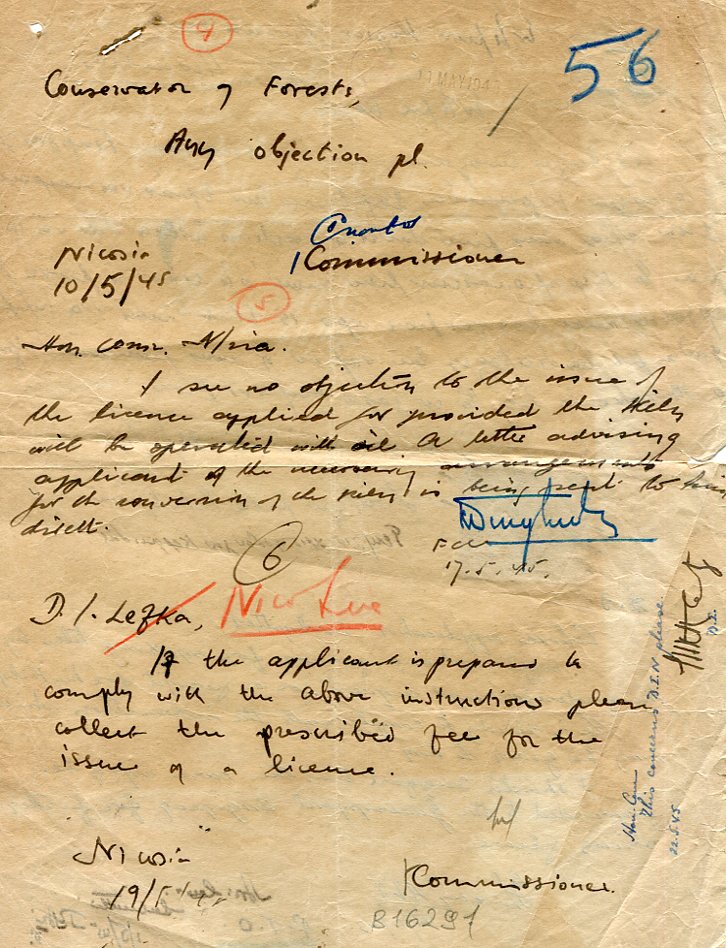 4
56
Conservator of Forests,
Any objection pl.
Nicosia
10/5/45
Commissioner
5
Hon. Comr. N/sia.
I see no objection to the issue of
the licence applied for provided the kiln
will be operated with oil A letter advising
applicant of the necessary arrangements
for the conversion of the kiln is being sent to him
direct.
17.5.45.
6
D.I. Lefka,
If the applicant is prepared to
comply with the above instructions please
collect the prescribed fee for the
issue of a licence.
Nicosia
19/5
Commissioner.
B16291
Hon. Com
This concerns D.I.N please.
22.5.45
D.I.